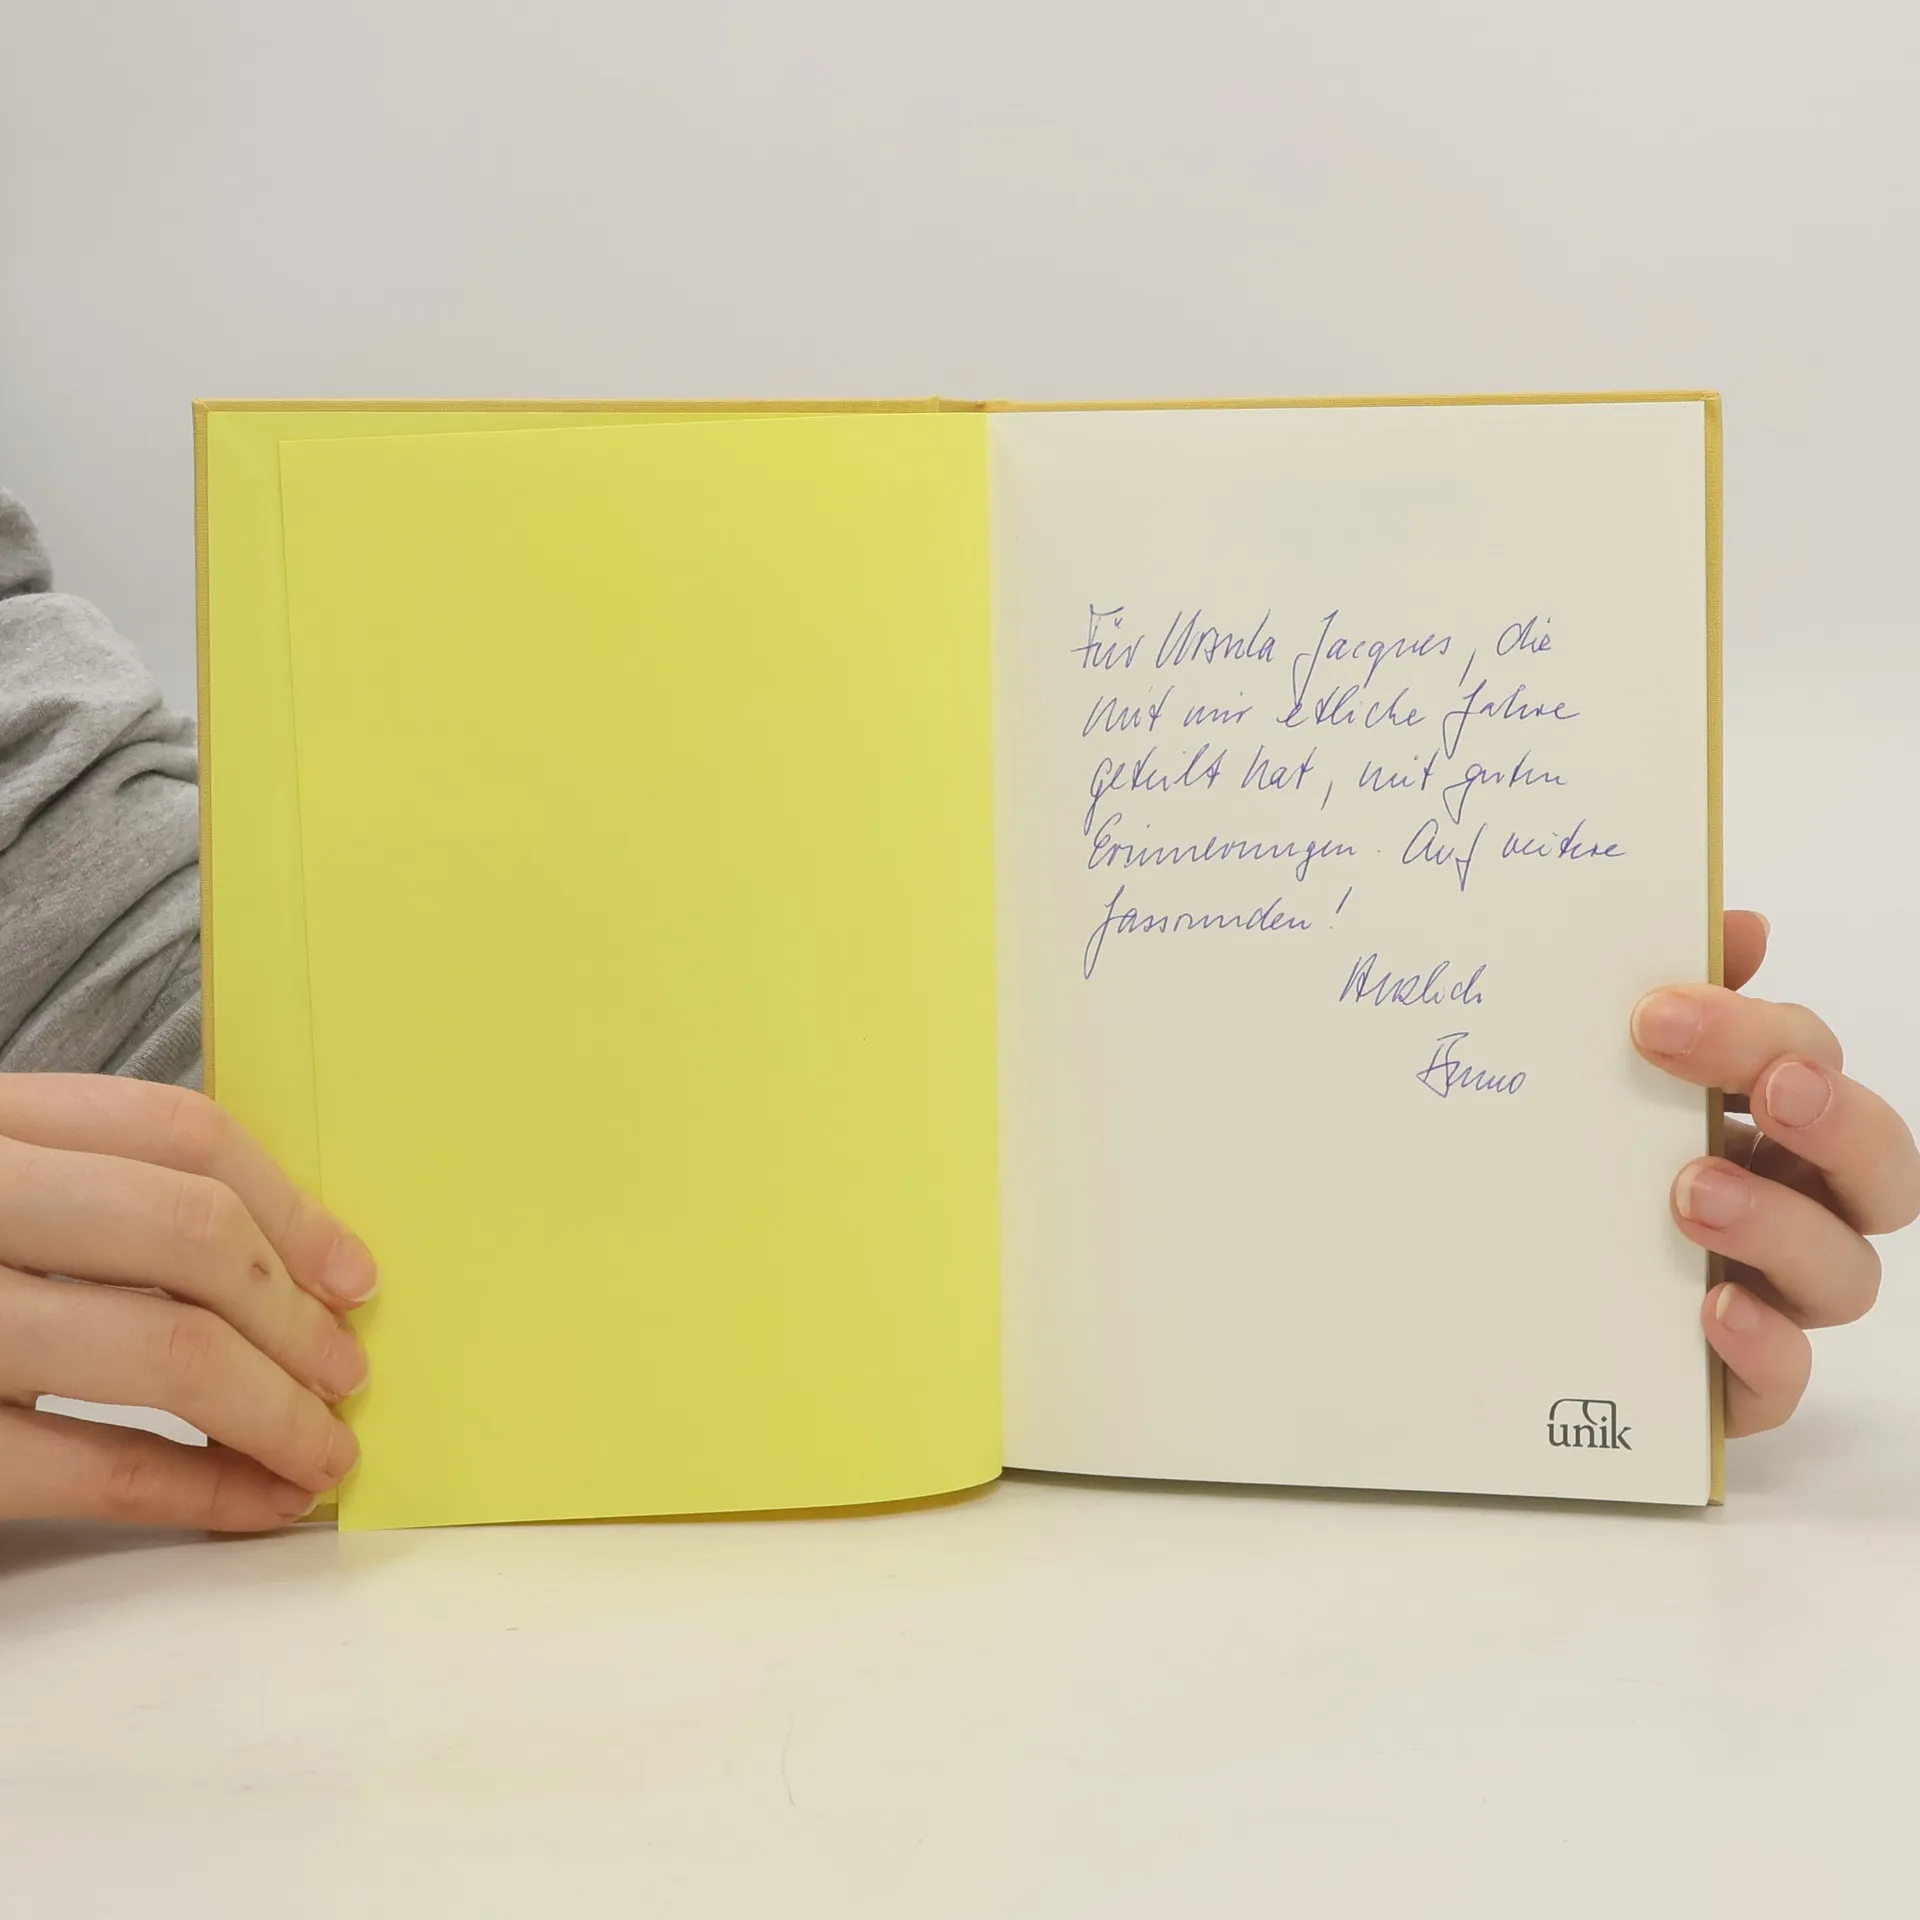 Für Ursula Jacques, die
mit mir etliche Jahre
geteilt hat, mit guten
Erinnerungen. Auf weitere
Jassrunden!
Herzlich
unik